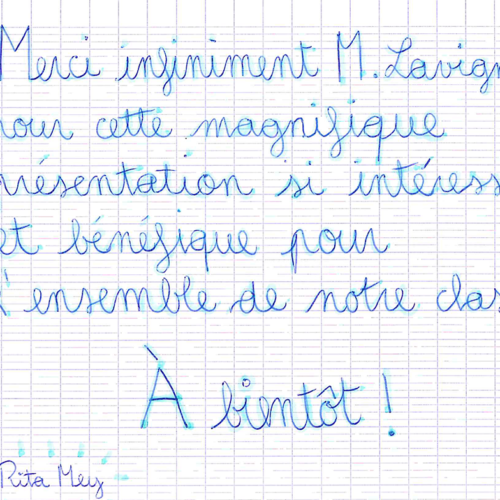 Merci infiniment M. Lavign
pour cette magnifique
présentation si intéress
et bénéfique pour
l'ensemble de notre clas
À bientôt !
Rita Mey